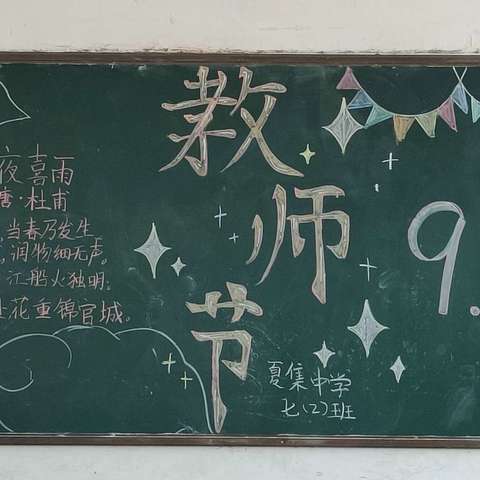 夜喜雨
唐·杜甫
当春乃发生
，润物细无声。
江船火独明。
花重锦官城。
教师节
9.
夏集中学
七(2)班